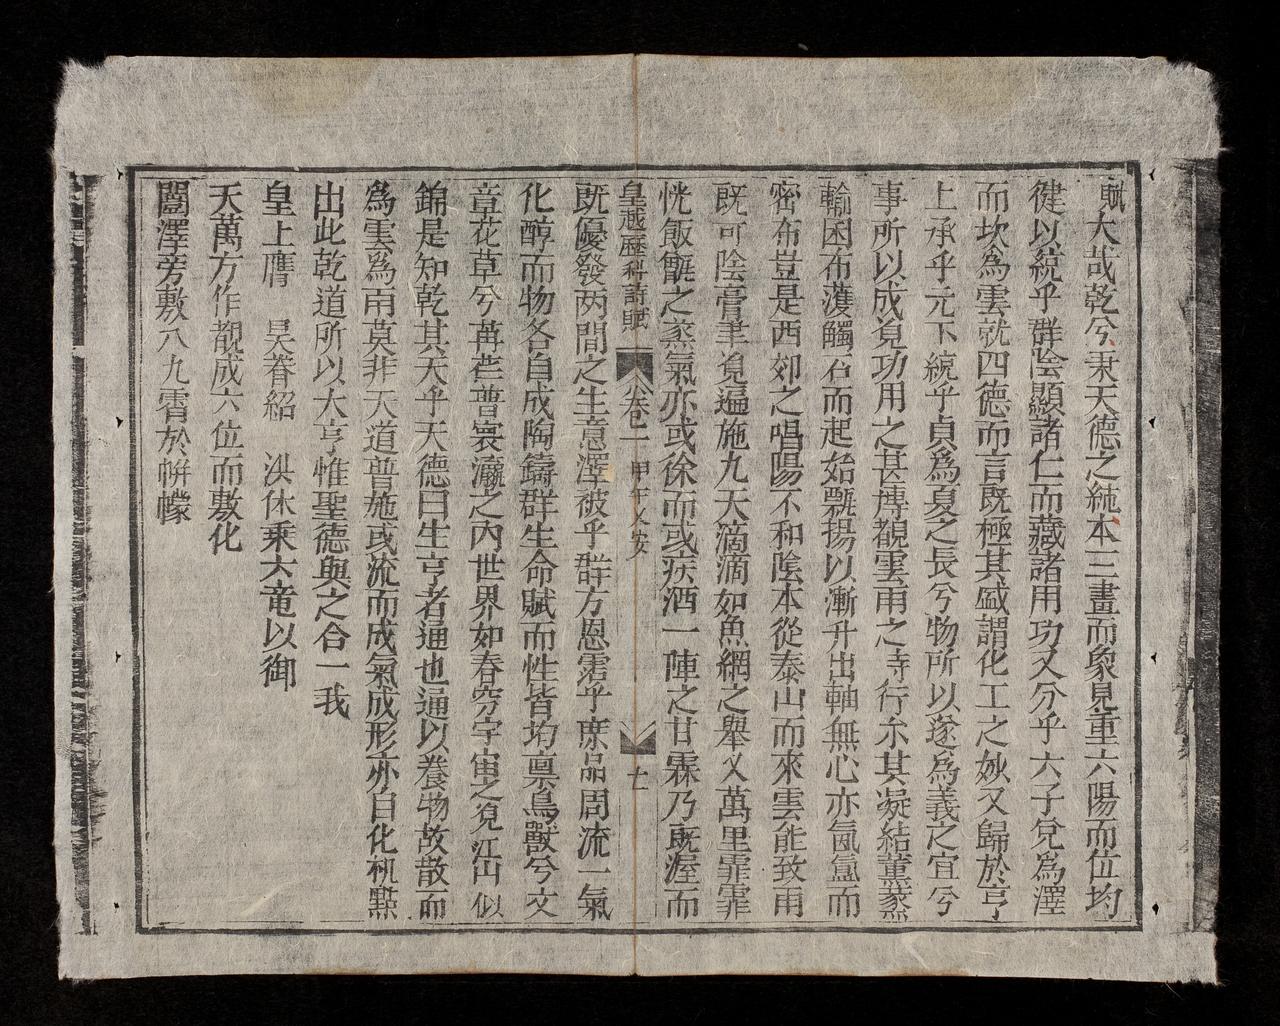 賦大哉乾兮秉天德之純本三畫而象見重六陽而位均
健以統乎群陰顯諸仁而藏諸用功又分乎六子兌為澤
而坎為雲就四德而言既極其盛謂化工之妙又歸於亨
上承乎元下統乎貞為夏之長兮物所以遂為義之宜兮
事所以成覓功用之甚博觀雲雨之時行尒其凝結薰蒸
輪囷布濩觸石而起始飄揚以漸升出軸無心亦氤氳而
密布豈是西郊之唱陽不和陰本從泰山而來雲能致雨
既可陰膏聿覓遍施九天滴滴如魚網之舉又萬里霏霏
恍飯甑之蒸氣亦或徐而或疾洒一陣之甘霖乃既渥而
皇越歷科詩賦 卷一 甲午乂安 十一
既優發两間之生意澤被乎群方恩霑乎庶品周流一氣
化醇而物各自成陶鑄群生命賦而性皆均稟鳥獸兮文
章花草兮苒荏普寰瀛之內世界如春窮宇宙之覓江山似
錦是知乾其天乎天德曰生亨者通也通以養物故散而
為雲為雨莫非天道普施或流而成氣成形亦自化机黙
出此乾道所以大亨惟聖德與之合一我
皇上膺 昊眷紹 洪休乘六竜以御
天萬方作覩成六位而敷化
闓澤旁敷八九霄於帡幪